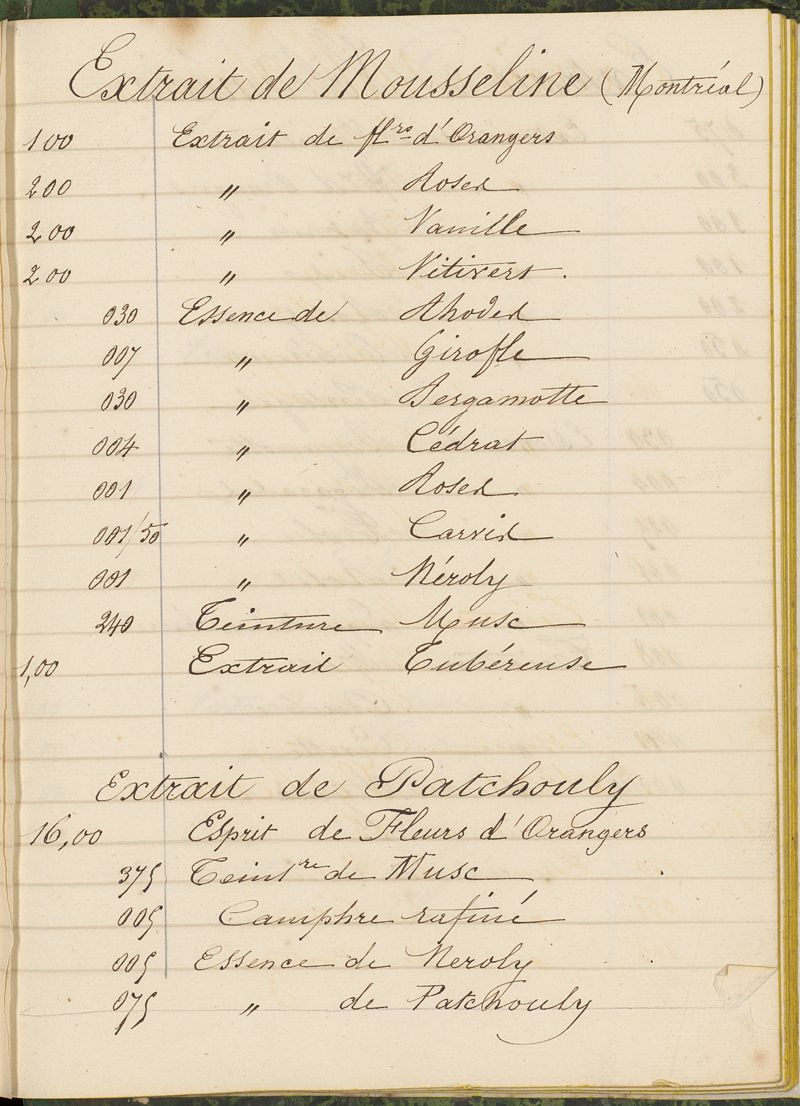 Extrait de Mousseline (Montréal)
100 Extrait de flrs d'Orangers
200 〃 Roses
200 〃 Vanille
200 〃 Vitivert.
030 Essence de Rhodes
007 〃 Girofle
030 〃 Bergamotte
004 〃 Cédrat
001 〃 Roses
001/50 〃 Carvis
001 〃 Néroly
240 Teinture Musc
1,00 Extrait Tubéreuse
Extrait de Patchouly
16,00 Esprit de Fleurs d'Orangers
375 Teintre de Musc
005 Camphre rafiné
005 Essence de Neroly
075 〃 de Patchouly